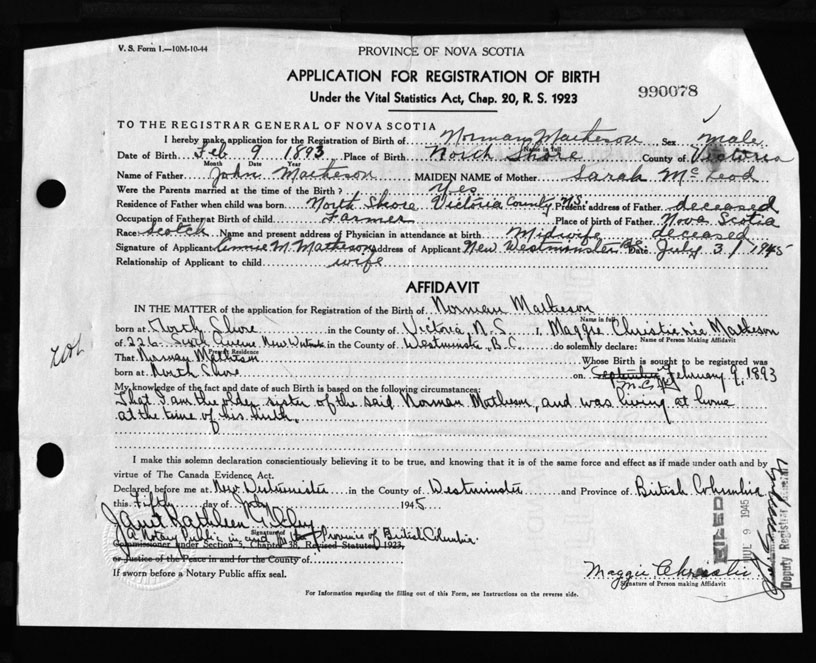 V. S. Form 1.—10M-10-44
PROVINCE OF NOVA SCOTIA
APPLICATION FOR REGISTRATION OF BIRTH
990078
Under the Vital Statistics Act, Chap. 20, R. S. 1923
TO THE REGISTRAR GENERAL OF NOVA SCOTIA
I hereby make application for the Registration of Birth of Norman Matheson Sex male
Name in full
Date of Birth Feb 9 1893 Place of Birth North Shore County of Victoria
Month Date Year
Name of Father John Matheson MAIDEN NAME of Mother Sarah McLeod
Were the Parents married at the time of the Birth? Yes
Residence of Father when child was born North Shore Victoria County N.S. Present address of Father deceased
Occupation of Father at Birth of child Farmer Place of birth of Father Nova Scotia
Race: Scotch Name and present address of Physician in attendance at birth Midwife deceased
Signature of Applicant M. Matheson Address of Applicant New Westminster B.C. Date July 3/1945
Relationship of Applicant to child wife
AFFIDAVIT
IN THE MATTER of the application for Registration of the Birth of Norman Matheson
Name in full
born at North Shore in the County of Victoria, N.S. I, Maggie Christie nee Matheson
Name of Person Making Affidavit
of 226 Sixth Avenue New in the County of Westminster, B.C. do solemnly declare:
Present Residence
That Norman Matheson Whose Birth is sought to be registered was
born at North Shore on September February 9, 1893
My knowledge of the fact and date of such Birth is based on the following circumstances:
That I am the older sister of the said Norman Matheson, and was living at home
at the time of his birth.
I make this solemn declaration conscientiously believing it to be true, and knowing that it is of the same force and effect as if made under oath and by
virtue of The Canada Evidence Act.
Declared before me at New Westminster in the County of Westminster and Province of British Columbia
this day of July 1945
Janet Kathleen Gilley
A Notary Public in and for the Province of British Columbia.
Commissioner under Section 5, Chapter 38, Revised Statutes, 1923,
or Justice of the Peace in and for the County of
If sworn before a Notary Public affix seal.
Maggie Christie
Signature of Person making Affidavit
FILED
JUL 9 1945
Deputy Registrar
For Information regarding the filling out of this Form, see Instructions on the reverse side.